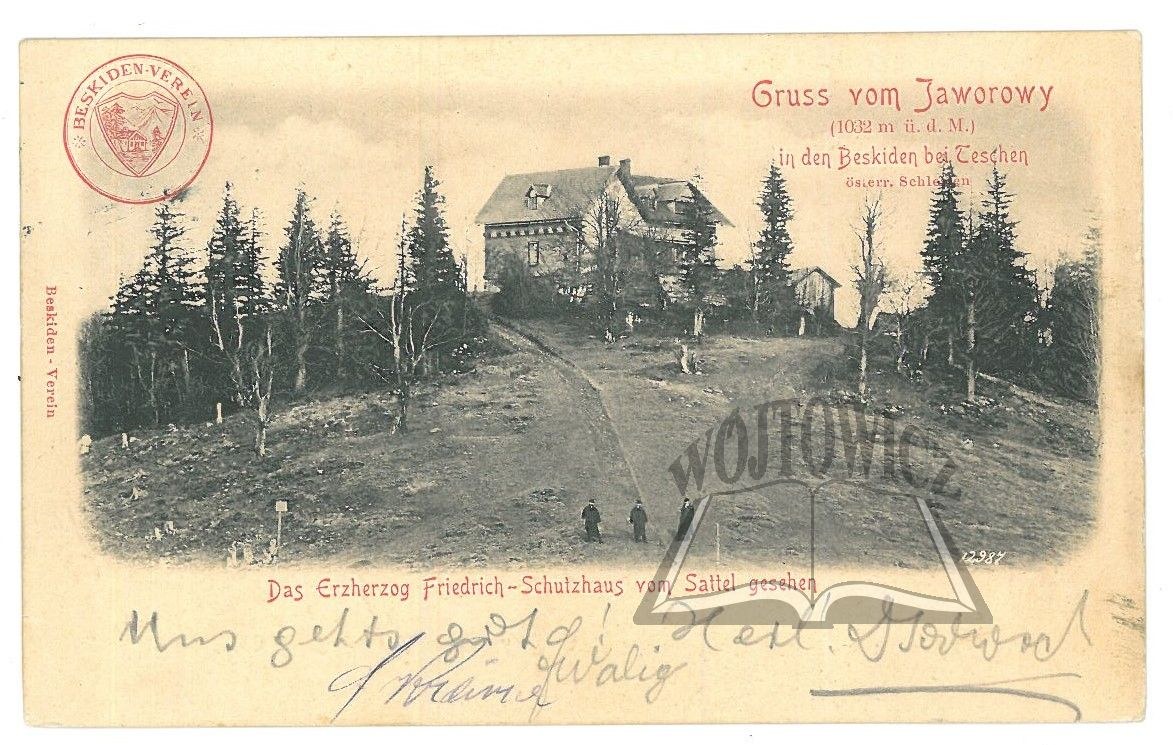 BESKIDEN-VEREIN
Gruss vom Jaworowy
(1032 m ü. d. M.)
in den Beskiden bei Teschen
österr. Schlesien
Beskiden - Verein
WÓJTOWICZ
12987
Das Erzherzog Friedrich-Schutzhaus vom Sattel gesehen
Uns gehts